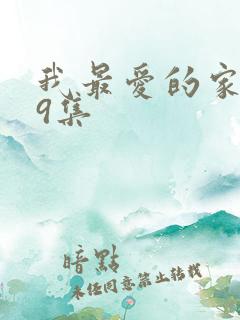 我最愛的家
9集
暗點
未任同意禁止转载